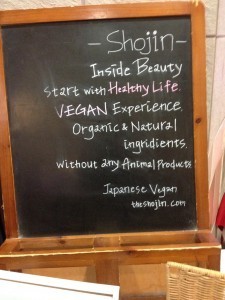 - Shojin -
Inside Beauty
Start with Healthy Life.
VEGAN Experience.
Organic & Natural
ingridients.
without any Animal Products.
Japanese Vegan
theshojin.com